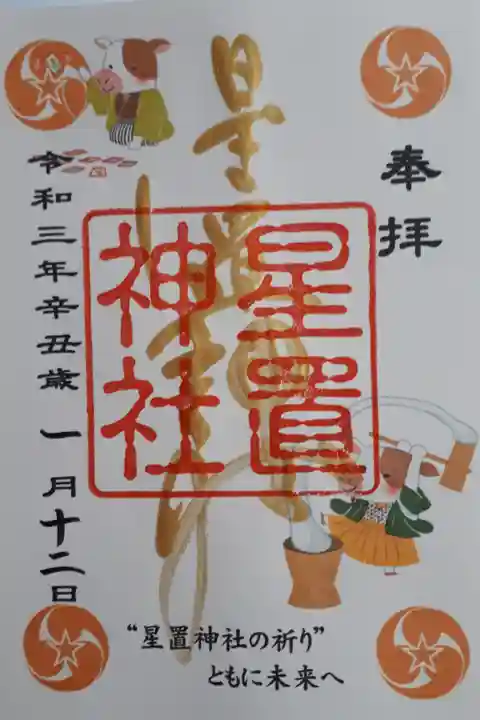 奉拝
星置神社
星置神社
令和三年辛丑歳 一月十二日
“星置神社の祈り”
ともに未来へ